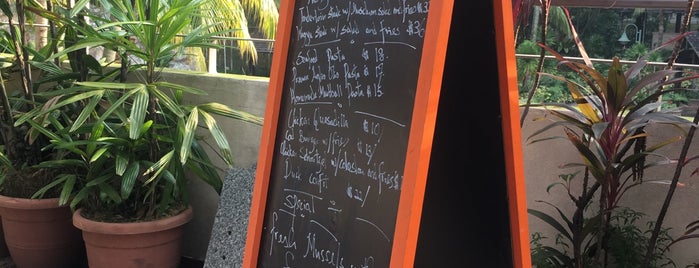 Tenderloin Steak w/ Mushroom sauce and fries $30
Steak w/ sauce and fries $30
Seafood Pasta $ 18.
Prawn Aglio Olio Pasta $ 17.
Homemade Meatball Pasta $ 15.
Chicken Quesadilla $ 10/
Cod Burger w/ fries $ 13/
Chicken w/ coleslaw and fries $
Duck confit $ 22/
Special
Fresh Mussels